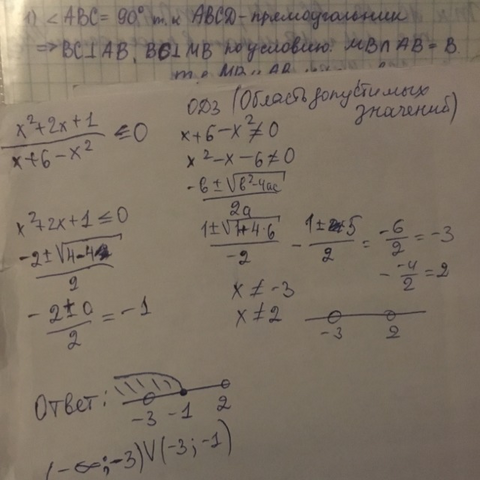 1) ∠ABC = 90° т.к ABCD - прямоугольник
⇒ BC⊥AB, BC⊥MB по условию. MB∩AB = B
x²+2x+1 / x+6-x² ≤ 0
ОДЗ (Область допустимых значений)
x+6-x² ≠ 0
x²-x-6 ≠ 0
-b ± √b²-4ac / 2a
x²+2x+1 ≤ 0
-2±√4-4 / 2
-2±0 / 2 = -1
1±√1+4·6 / -2
- 1±5 / 2 = -6 / 2 = -3
- -4 / 2 = 2
x ≠ -3
x ≠ 2
-3 2
Ответ:
-3 -1 2
(-∞;-3)V(-3;-1)